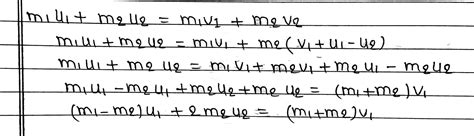 m₁u₁ + m₂u₂ = m₁v₁ + m₂v₂
m₁u₁ + m₂u₂ = m₁v₁ + m₂(v₁+u₁-u₂)
m₁u₁ + m₂u₂ = m₁v₁ + m₂v₁ + m₂u₁ - m₂u₂
m₁u₁ - m₂u₁ + m₂u₂ + m₂u₂ = (m₁+m₂)v₁
(m₁-m₂)u₁ + 2m₂u₂ = (m₁+m₂)v₁